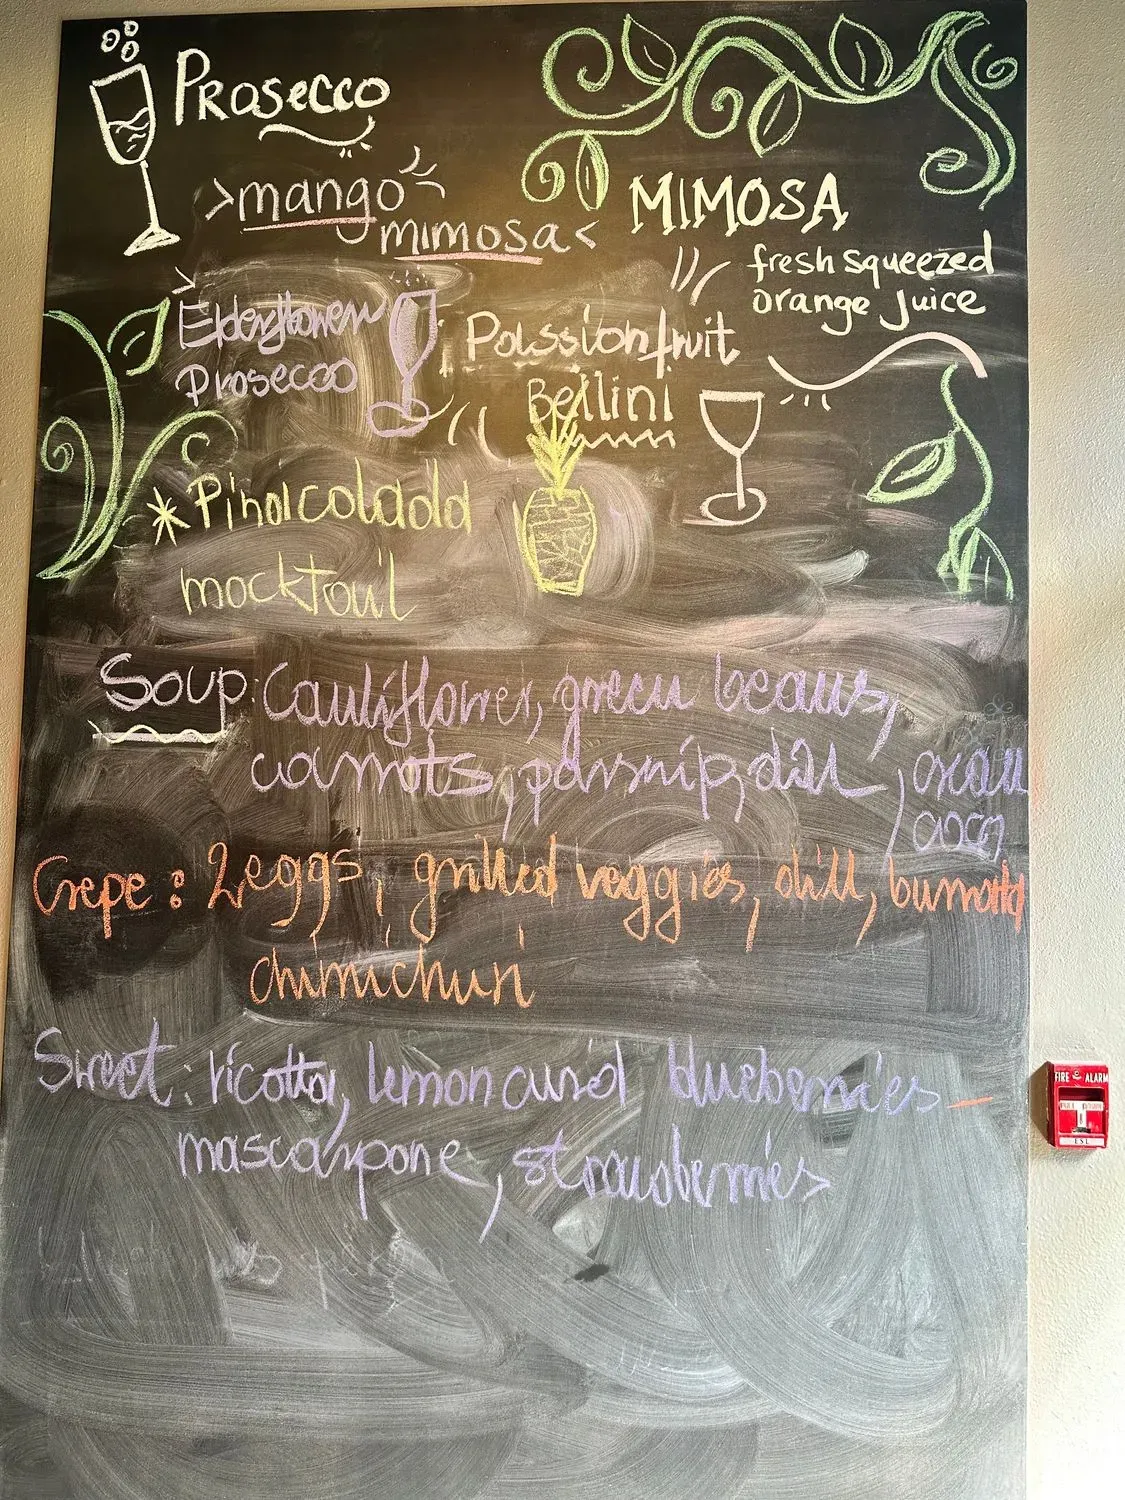 Prosecco
>mango
mimosa<
MIMOSA
fresh squeezed
orange juice
Elderflower
Prosecco
Passionfruit
Bellini
*Pinacolada
mocktail
Soup: Cauliflower, green beans,
carrots, parsnip, dill,
Crepe: 2 eggs, grilled veggies, dill, burrata
chimichuri
Sweet: ricotta, lemon curd blueberries
mascarpone, strawberries
FIRE ALARM